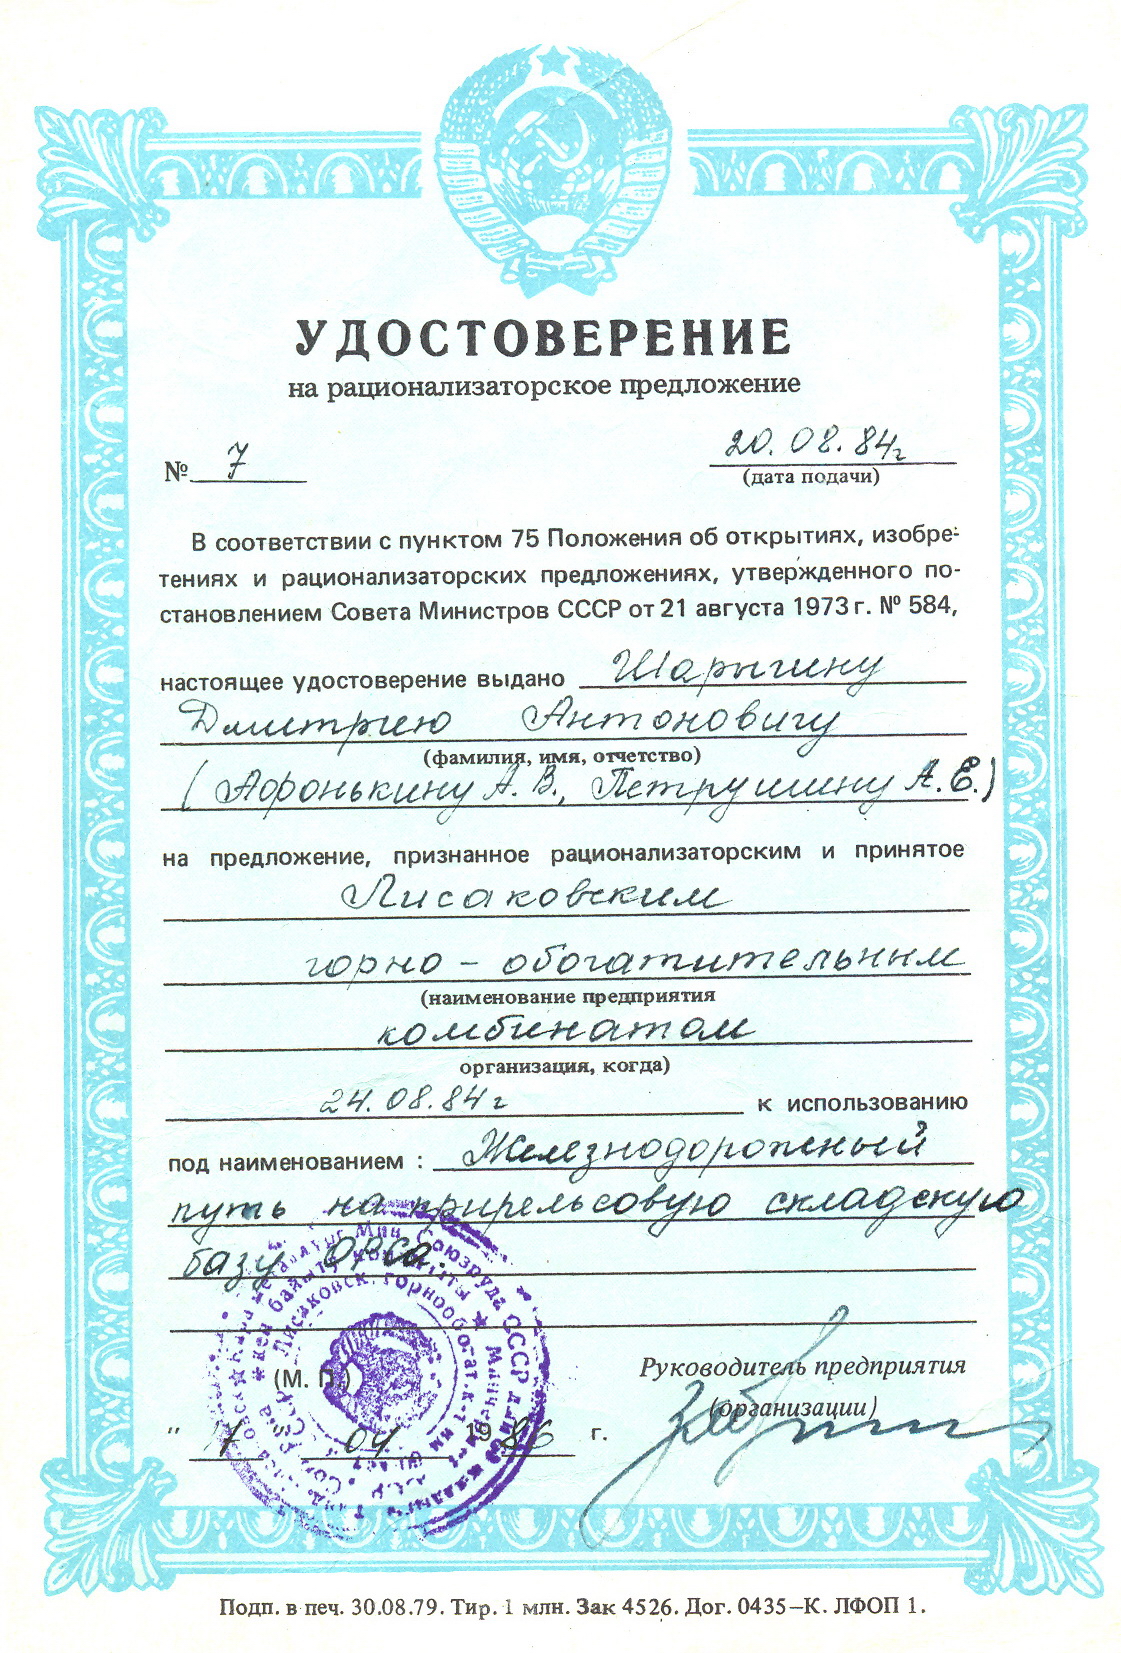 УДОСТОВЕРЕНИЕ
на рационализаторское предложение
№ 7
20.08.84г
(дата подачи)
В соответствии с пунктом 75 Положения об открытиях, изобре-
тениях и рационализаторских предложениях, утвержденного по-
становлением Совета Министров СССР от 21 августа 1973 г. № 584,
настоящее удостоверение выдано Шарыгину
Дмитрию Антоновичу
(фамилия, имя, отчетство)
(Афонькину А. В., Петрушину А. Е.)
на предложение, признанное рационализаторским и принятое
Лисаковским
горно - обогатительным
(наименование предприятия
комбинатом
организация, когда)
24.08.84г к использованию
под наименованием : Железнодорожный
путь на прирельсовую складскую
базу ОРСа.
Союзруда СССР
Лисаковск. горнообогат. к-т
(М. П.)
Руководитель предприятия
(организации)
" 04 1986 г.
Подп. в печ. 30.08.79. Тир. 1 млн. Зак 4526. Дог. 0435–К. ЛФОП 1.